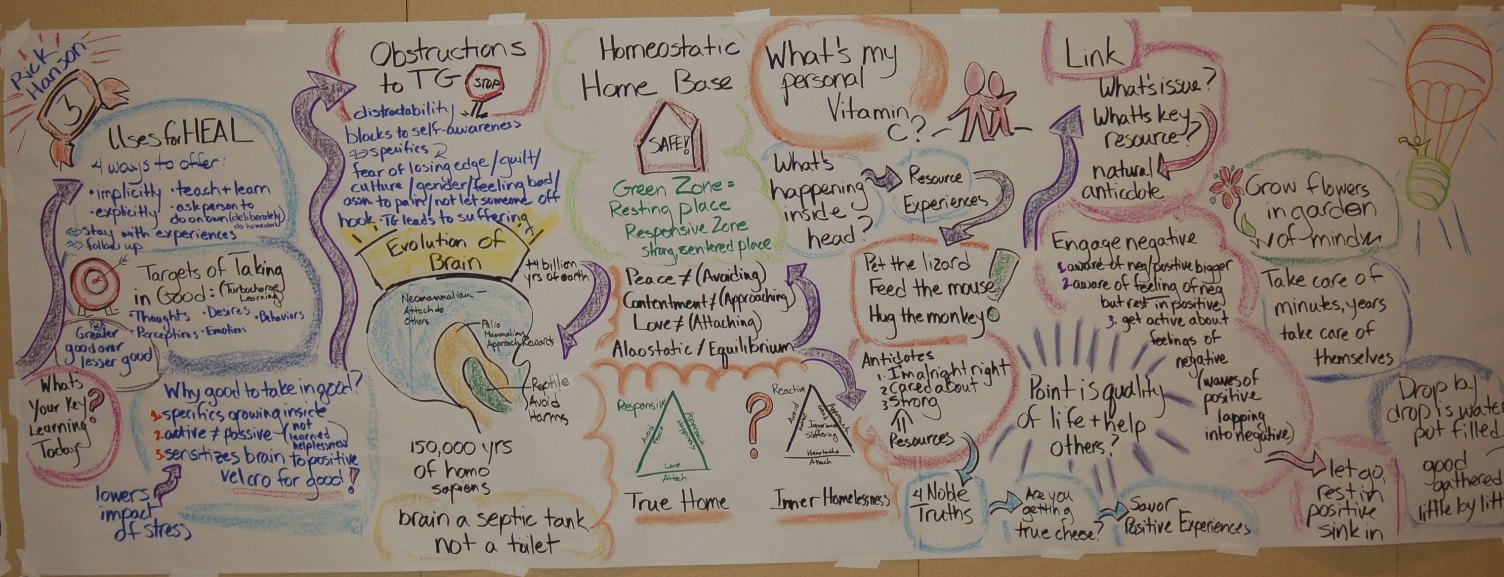 Rick
Hanson
3
Uses for HEAL
4 ways to offer:
• implicitly • teach + learn
• explicitly • ask person to
do on own (deliberately
do homework)
⇒ stay with experiences
⇒ follow up
Targets of Taking
in Good: (Turbocharge
Learning)
• Thoughts • Desires • Behaviors
• Perceptions • Emotions
Greater
good over
lesser good
What's
Your Key
Learning
Today?
Why good to take in good?
1. specifics growing inside
2. active ≠ passive (not
learned
helplessness)
3. sensitizes brain to positive
velcro for good!
lowers
impact
of stress
Obstructions
to TG
STOP
distractability
blocks to self-awareness
⇒ specifics
fear of losing edge/guilt/
culture/gender/feeling bad/
assn to pain/not let someone off
hook • TG leads to suffering
Evolution of
Brain
4 billion
yrs of earth
Neomammalian -
Attach to
Others
Palio
Mammalian
Approach Rewards
Reptile
Avoid
Harms
150,000 yrs
of homo
sapiens
brain a septic tank
not a toilet
Homeostatic
Home Base
SAFE!
Green Zone =
Resting place
Responsive Zone
strong, centered place
Peace ≠ (Avoiding)
Contentment ≠ (Approaching)
Love ≠ (Attaching)
Alaostatic / Equilibrium
Responsive
Avoid
Peace
Approach
Love
Attach
True Home
?
Reactive
Avoid
Approach
Suffering
Heartache
Attach
Inner Homelessness
What's my
personal
Vitamin
C?
What's
happening
inside
head?
Resource
Experiences
Pet the lizard
Feed the mouse
Hug the monkey!
Antidotes
1. I'm alright right
2. Cared about
3. Strong
Resources
4 Noble
Truths
Are you
getting
true cheese?
Savor
Positive Experiences
Link
What's issue?
What's key
resource?
natural
antidote
Engage negative
1. aware of neg/positive bigger
2. aware of feeling of neg
but rest in positive
3. get active about
feelings of
negative
(waves of
positive
lapping
into negative)
Point is quality
of life + help
others?
let go,
rest in
positive
sink in
Grow flowers
in garden
of mind
Take care of
minutes, years
take care of
themselves
Drop by
drop is water
pot filled
good
gathered
little by little